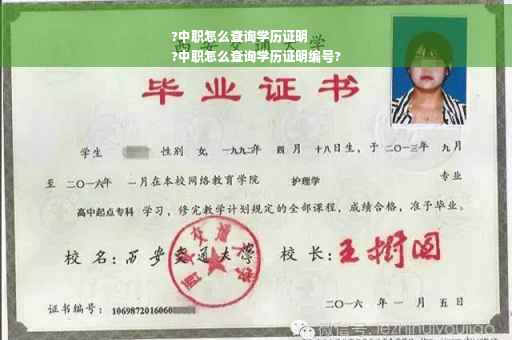 ?中职怎么查询学历证明
西安交通大学
?中职怎么查询学历证明编号?
毕业证书
学生 性别 女, 一九九二年 四 月 十八日生, 于二〇一三年 九月
至 二〇一六年 一月在本校网络教育学院 护理学 专业
高中起点专科 学习, 修完教学计划规定的全部课程, 成绩合格, 准予毕业。
校 名: 西安交通大学 校 长: 王树国
西安交通大学
证书编号: 1069872016060
二〇一六 年 一 月 五 日
微信号: jezhihuiyoujiao